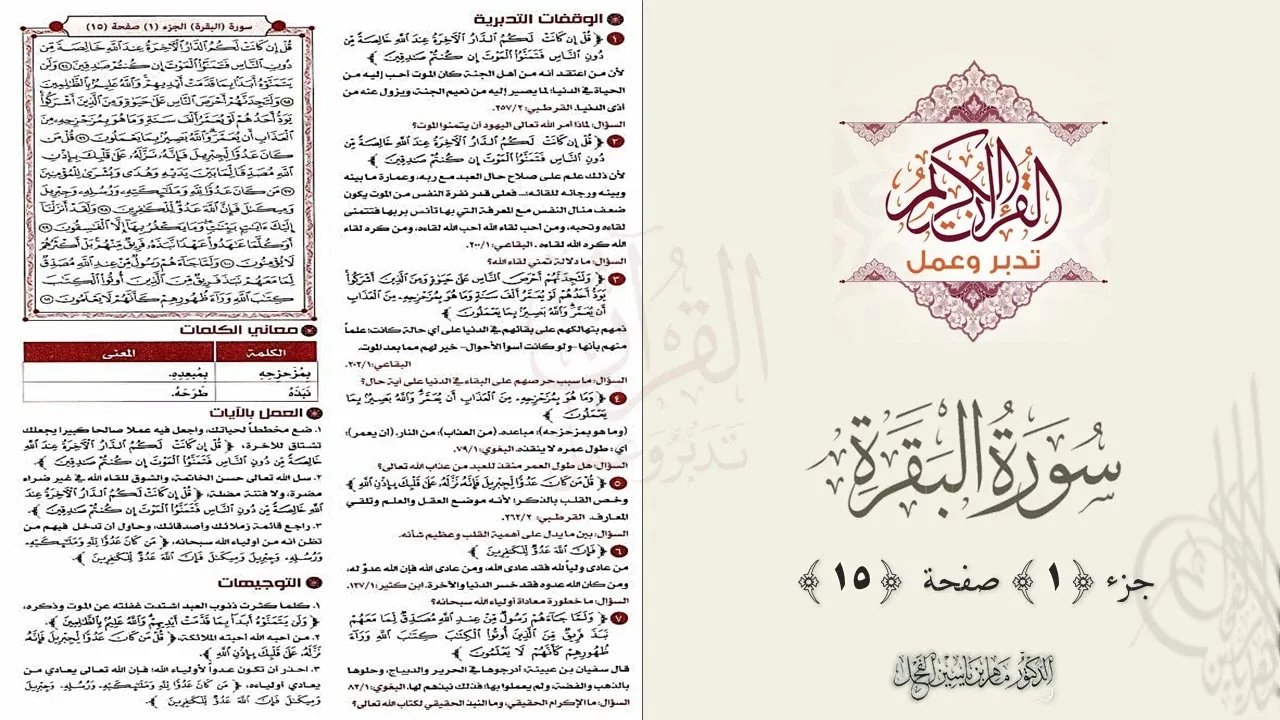 القرآن الكريم
تدبر وعمل
سُورَةُ البَقَرَة
جزء ﴿ ١ ﴾ صفحة ﴿ ١٥ ﴾
الدكتور ماهر ياسين الفحل
الوقفات التدبرية
١ ﴿ قُلْ إِن كَانَتْ لَكُمُ الدَّارُ الْآخِرَةُ عِندَ اللَّهِ خَالِصَةً مِّن
دُونِ النَّاسِ فَتَمَنَّوُا الْمَوْتَ إِن كُنتُمْ صَادِقِينَ ﴾
لأن من اعتقد أنه من أهل الجنة كان الموت أحب إليه من
الحياة في الدنيا؛ لما يصير إليه من نعيم الجنة، ويزول عنه من
أذى الدنيا. القرطبي: ٢٥٧/٢.
السؤال: لماذا أمر الله تعالى اليهود أن يتمنوا الموت؟
٢ ﴿ قُلْ إِن كَانَتْ لَكُمُ الدَّارُ الْآخِرَةُ عِندَ اللَّهِ خَالِصَةً مِّن
دُونِ النَّاسِ فَتَمَنَّوُا الْمَوْتَ إِن كُنتُمْ صَادِقِينَ ﴾
لأن ذلك علم على صلاح حال العبد مع ربه، وعمارة ما بينه
وبينه ورجائه للقائه... فعلى قدر نفرة النفس من الموت يكون
ضعف منال النفس مع المعرفة التي بها تأنس بربها فتتمنى
لقاءه وتحبه، ومن أحب لقاء الله أحب الله لقاءه، ومن كره لقاء
الله كره الله لقاءه. البقاعي: ٢٠٠/١.
السؤال: ما دلالة تمني لقاء الله؟
٣ ﴿ وَلَتَجِدَنَّهُمْ أَحْرَصَ النَّاسِ عَلَىٰ حَيَاةٍ وَمِنَ الَّذِينَ أَشْرَكُوا
يَوَدُّ أَحَدُهُمْ لَوْ يُعَمَّرُ أَلْفَ سَنَةٍ وَمَا هُوَ بِمُزَحْزِحِهِ مِنَ الْعَذَابِ
أَن يُعَمَّرَ وَاللَّهُ بَصِيرٌ بِمَا يَعْمَلُونَ ﴾
ذمهم بتهالكهم على بقائهم في الدنيا على أي حالة كانت؛ علماً
منهم بأنها -ولو كانت أسوأ الأحوال- خير لهم مما بعد الموت.
البقاعي: ٢٠٢/١.
السؤال: ما سبب حرصهم على البقاء في الدنيا على أية حال؟
٤ ﴿ وَمَا هُوَ بِمُزَحْزِحِهِ مِنَ الْعَذَابِ أَن يُعَمَّرَ وَاللَّهُ بَصِيرٌ بِمَا
يَعْمَلُونَ ﴾
(وما هو بمزحزحه): مباعده، (من العذاب): من النار. (أن يعمر):
أي: طول عمره لا ينقذه. البغوي: ٧٩/١.
السؤال: هل طول العمر منقذ للعبد من عذاب الله تعالى؟
٥ ﴿ قُلْ مَن كَانَ عَدُوًّا لِّجِبْرِيلَ فَإِنَّهُ نَزَّلَهُ عَلَىٰ قَلْبِكَ بِإِذْنِ اللَّهِ ﴾
وخص القلب بالذكر؛ لأنه موضع العقل والعلم وتلقي
المعارف. القرطبي: ٢٦٢/٢.
السؤال: بين ما يدل على أهمية القلب وعظيم شأنه.
٦ ﴿ فَإِنَّ اللَّهَ عَدُوٌّ لِّلْكَافِرِينَ ﴾
من عادى ولياً لله فقد عادى الله، ومن عادى الله فإن الله عدوٌ له،
ومن كان الله عدوه فقد خسر الدنيا والآخرة. ابن كثير: ١٢٧/١.
السؤال: ما خطورة معاداة أولياء الله سبحانه؟
٧ ﴿ وَلَمَّا جَاءَهُمْ رَسُولٌ مِّنْ عِندِ اللَّهِ مُصَدِّقٌ لِّمَا مَعَهُمْ
نَبَذَ فَرِيقٌ مِّنَ الَّذِينَ أُوتُوا الْكِتَابَ كِتَابَ اللَّهِ وَرَاءَ
ظُهُورِهِمْ كَأَنَّهُمْ لَا يَعْلَمُونَ ﴾
قال سفيان بن عيينة: أدرجوها في الحرير والديباج، وحلوها
بالذهب والفضة، ولم يعملوا بها؛ فذلك نبذهم لها. البغوي: ٨٢/١
السؤال: ما الإكرام الحقيقي، وما النبذ الحقيقي لكتاب الله تعالى؟
سورة (البقرة) الجزء (١) صفحة (١٥)
قُلْ إِن كَانَتْ لَكُمُ الدَّارُ الْآخِرَةُ عِندَ اللَّهِ خَالِصَةً مِّن
دُونِ النَّاسِ فَتَمَنَّوُا الْمَوْتَ إِن كُنتُمْ صَادِقِينَ ٩٤ وَلَن
يَتَمَنَّوْهُ أَبَدًا بِمَا قَدَّمَتْ أَيْدِيهِمْ وَاللَّهُ عَلِيمٌ بِالظَّالِمِينَ
٩٥ وَلَتَجِدَنَّهُمْ أَحْرَصَ النَّاسِ عَلَىٰ حَيَاةٍ وَمِنَ الَّذِينَ أَشْرَكُوا
يَوَدُّ أَحَدُهُمْ لَوْ يُعَمَّرُ أَلْفَ سَنَةٍ وَمَا هُوَ بِمُزَحْزِحِهِ مِنَ
الْعَذَابِ أَن يُعَمَّرَ وَاللَّهُ بَصِيرٌ بِمَا يَعْمَلُونَ ٩٦ قُلْ مَن
كَانَ عَدُوًّا لِّجِبْرِيلَ فَإِنَّهُ نَزَّلَهُ عَلَىٰ قَلْبِكَ بِإِذْنِ
اللَّهِ مُصَدِّقًا لِّمَا بَيْنَ يَدَيْهِ وَهُدًى وَبُشْرَىٰ لِلْمُؤْمِنِينَ
٩٧ مَن كَانَ عَدُوًّا لِّلَّهِ وَمَلَائِكَتِهِ وَرُسُلِهِ وَجِبْرِيلَ
وَمِيكَالَ فَإِنَّ اللَّهَ عَدُوٌّ لِّلْكَافِرِينَ ٩٨ وَلَقَدْ أَنزَلْنَا
إِلَيْكَ آيَاتٍ بَيِّنَاتٍ وَمَا يَكْفُرُ بِهَا إِلَّا الْفَاسِقُونَ ٩٩
أَوَكُلَّمَا عَاهَدُوا عَهْدًا نَّبَذَهُ فَرِيقٌ مِّنْهُم بَلْ أَكْثَرُهُمْ
لَا يُؤْمِنُونَ ١٠٠ وَلَمَّا جَاءَهُمْ رَسُولٌ مِّنْ عِندِ اللَّهِ مُصَدِّقٌ
لِّمَا مَعَهُمْ نَبَذَ فَرِيقٌ مِّنَ الَّذِينَ أُوتُوا الْكِتَابَ
كِتَابَ اللَّهِ وَرَاءَ ظُهُورِهِمْ كَأَنَّهُمْ لَا يَعْلَمُونَ ١٠١
معاني الكلمات
الكلمة المعنى
بِمُزَحْزِحِهِ بِمُبعِدِهِ.
نَبَذَهُ طَرَحَهُ.
العمل بالآيات
١. ضع مخططاً لحياتك، واجعل فيه عملا صالحا كبيرا يجعلك
تشتاق للآخرة، ﴿ قُلْ إِن كَانَتْ لَكُمُ الدَّارُ الْآخِرَةُ عِندَ اللَّهِ
خَالِصَةً مِّن دُونِ النَّاسِ فَتَمَنَّوُا الْمَوْتَ إِن كُنتُمْ صَادِقِينَ ﴾
٢. سل الله تعالى حسن الخاتمة، والشوق للقاء الله في غير ضراء
مضرة، ولا فتنة مضلة، ﴿ قُلْ إِن كَانَتْ لَكُمُ الدَّارُ الْآخِرَةُ عِندَ
اللَّهِ خَالِصَةً مِّن دُونِ النَّاسِ فَتَمَنَّوُا الْمَوْتَ إِن كُنتُمْ صَادِقِينَ ﴾
٣. راجع قائمة زملائك وأصدقائك، وحاول أن تدخل فيهم من
تظن أنه من أولياء الله سبحانه، ﴿ مَن كَانَ عَدُوًّا لِّلَّهِ وَمَلَائِكَتِهِ
وَرُسُلِهِ وَجِبْرِيلَ وَمِيكَالَ فَإِنَّ اللَّهَ عَدُوٌّ لِّلْكَافِرِينَ ﴾
التوجيهات
١. كلما كثرت ذنوب العبد اشتدت غفلته عن الموت وذكره،
﴿ وَلَن يَتَمَنَّوْهُ أَبَدًا بِمَا قَدَّمَتْ أَيْدِيهِمْ وَاللَّهُ عَلِيمٌ بِالظَّالِمِينَ ﴾
٢. من أحبه الله أحبته الملائكة، ﴿ قُلْ مَن كَانَ عَدُوًّا لِّجِبْرِيلَ فَإِنَّهُ
نَزَّلَهُ عَلَىٰ قَلْبِكَ بِإِذْنِ اللَّهِ ﴾
٣. احذر أن تكون عدواً لأولياء الله؛ فإن الله تعالى يعادي من
يعادي أولياءه، ﴿ مَن كَانَ عَدُوًّا لِّلَّهِ وَمَلَائِكَتِهِ وَرُسُلِهِ وَجِبْرِيلَ
وَمِيكَالَ فَإِنَّ اللَّهَ عَدُوٌّ لِّلْكَافِرِينَ ﴾